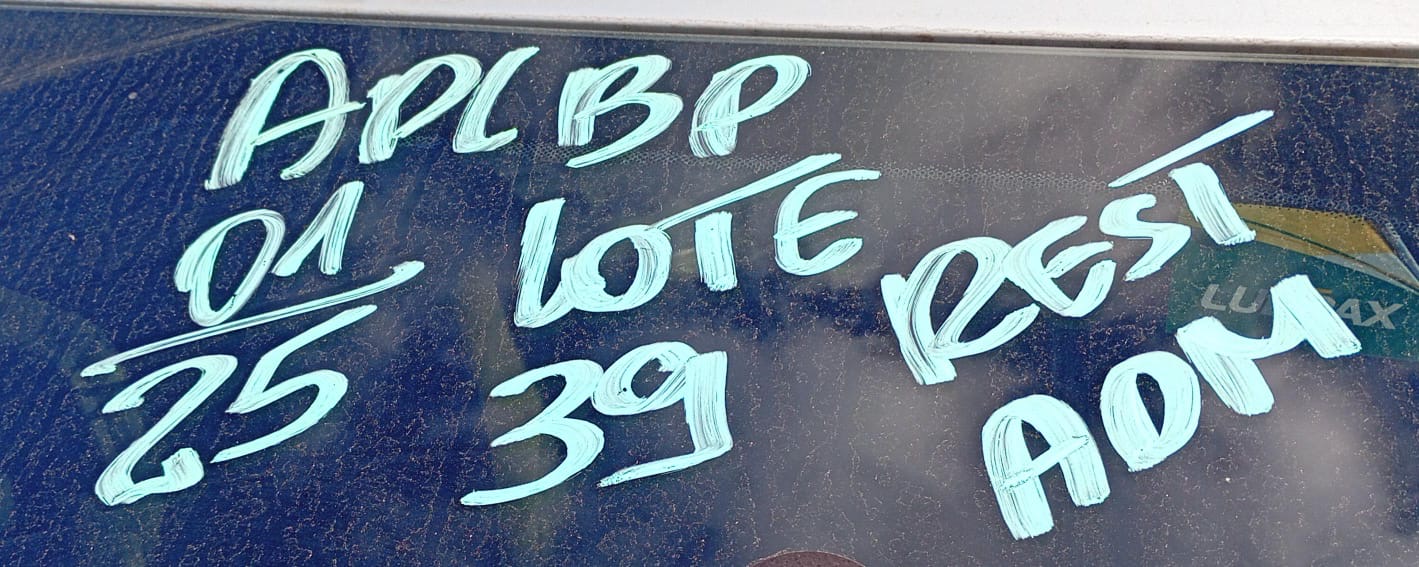 APLBP
01/25
LOTE
39
REST
ADM